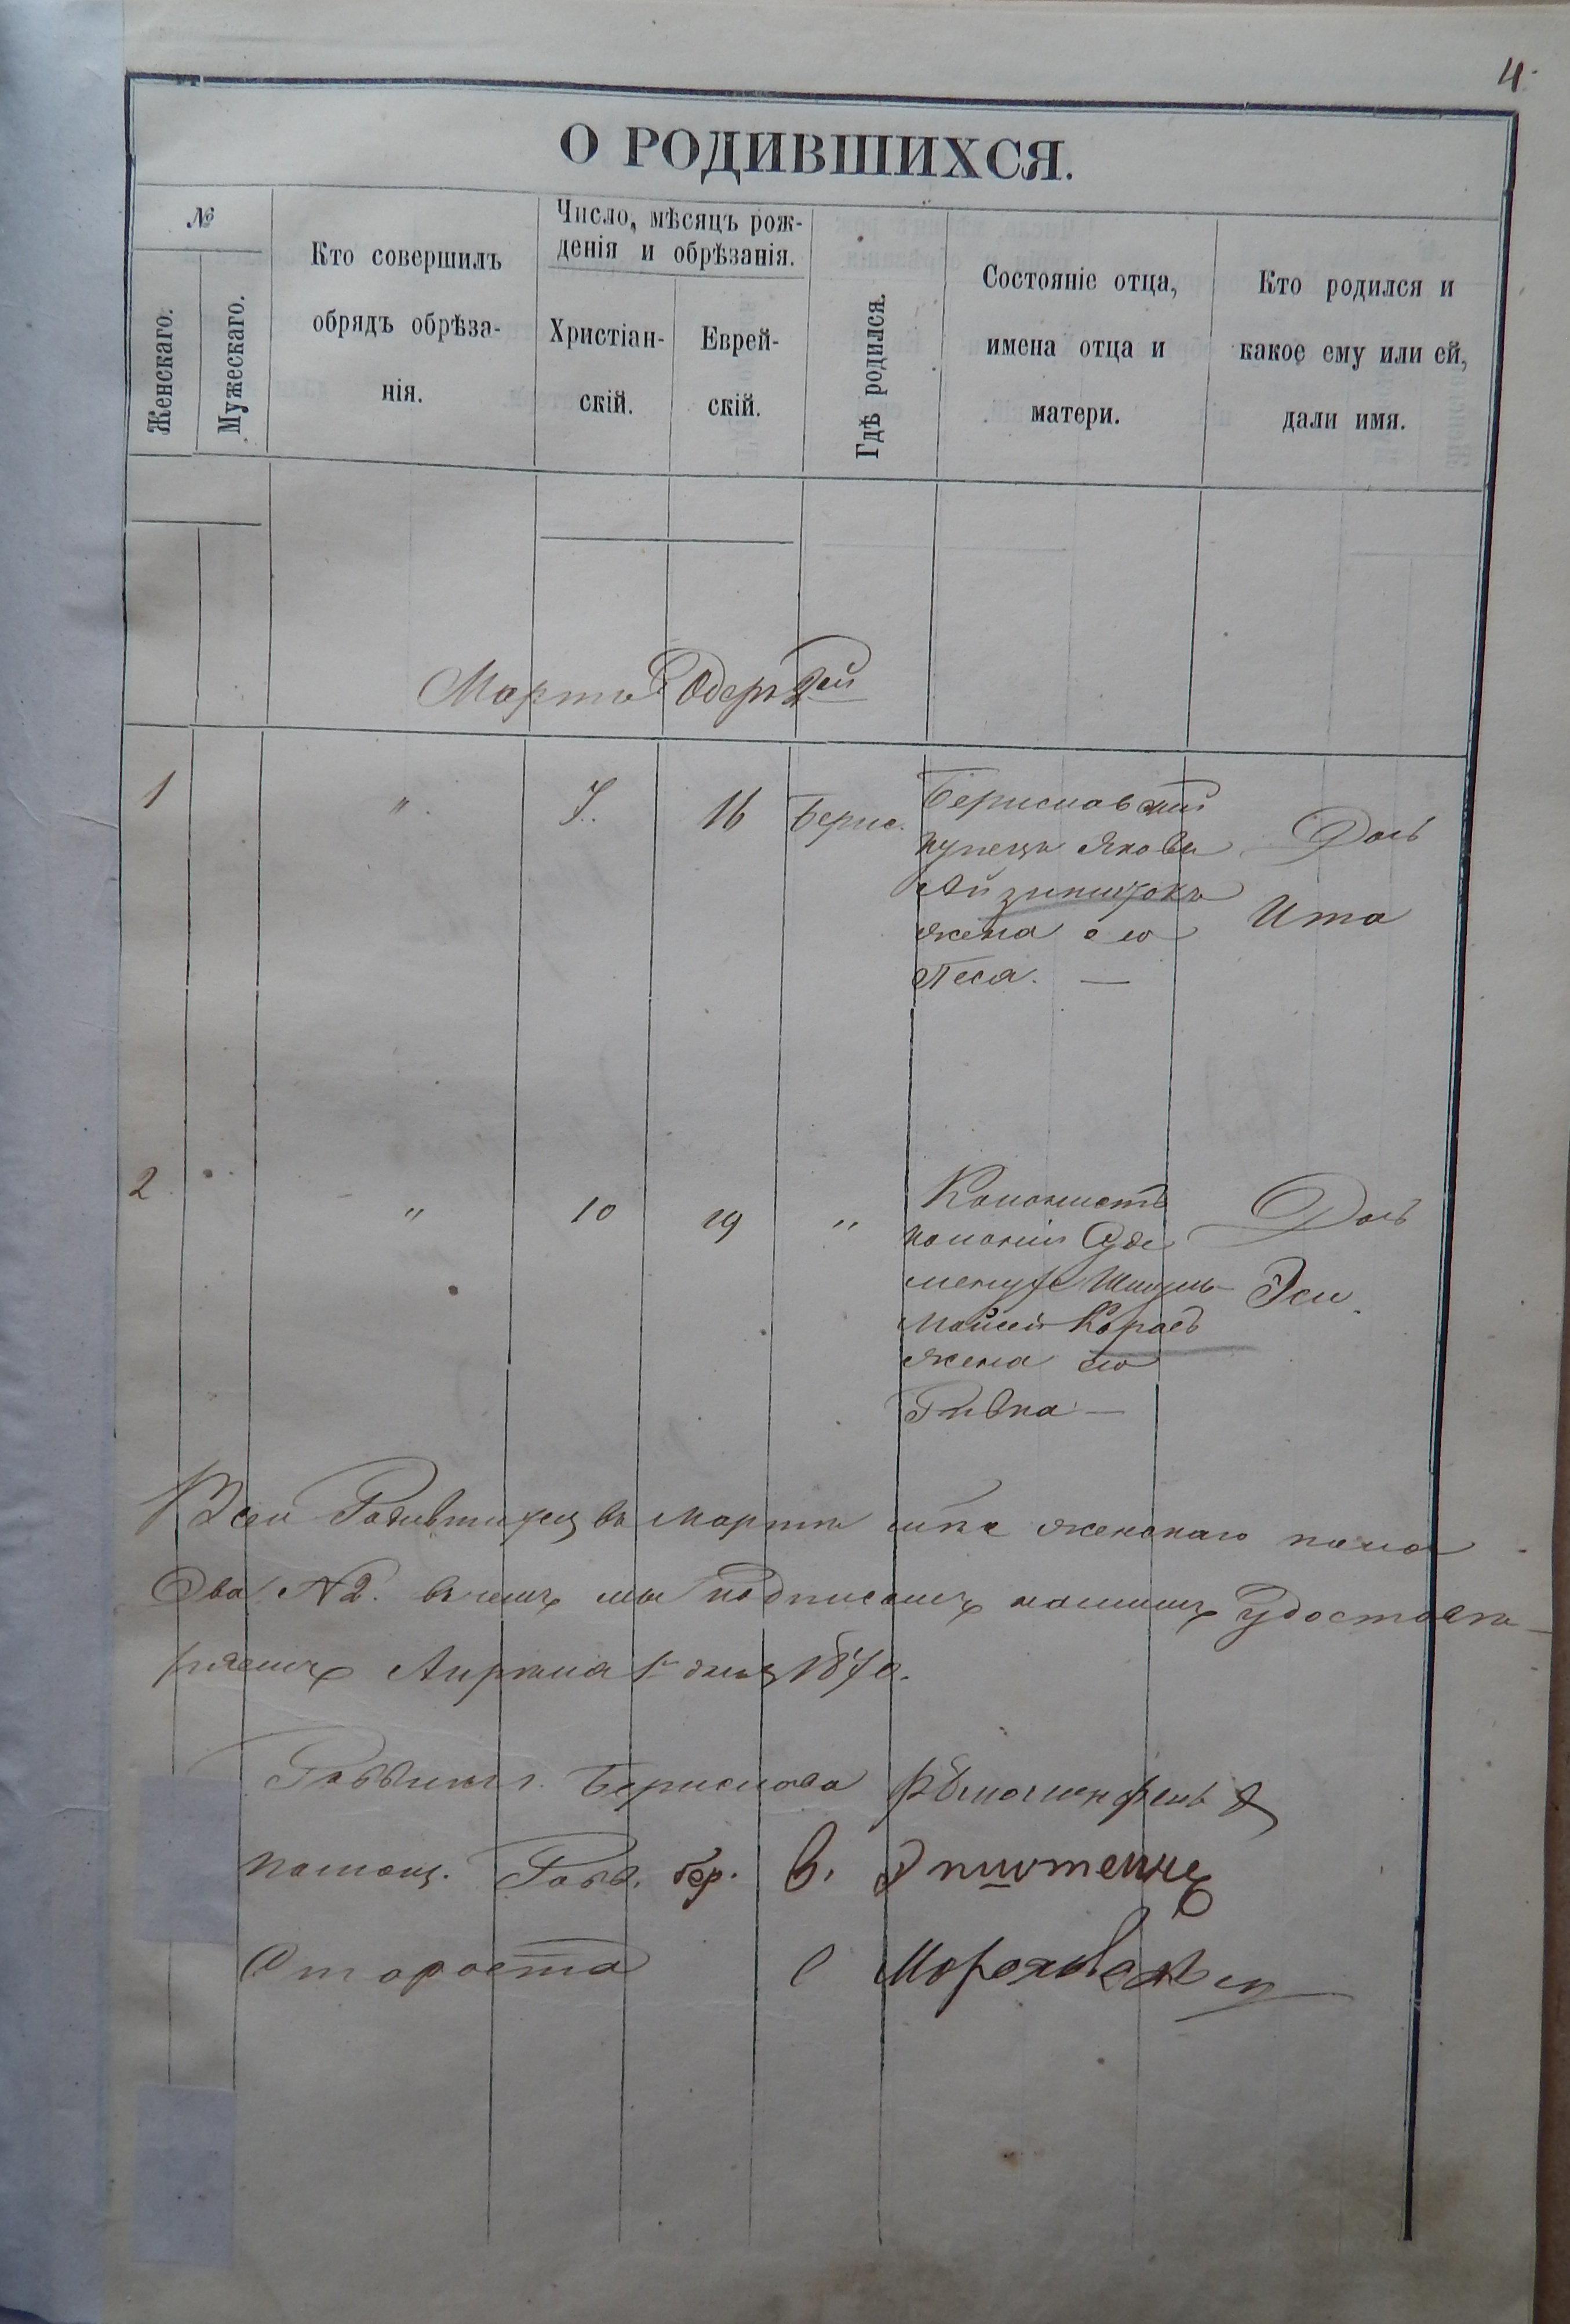 4.
О РОДИВШИХСЯ.
№
Женскаго.
Мужескаго.
Кто совершилъ
обрядъ обрѣза-
нія.
Число, мѣсяцъ рож-
денія и обрѣзанія.
Христіан-
скій.
Еврей-
скій.
Гдѣ родился.
Состояніе отца,
имена отца и
матери.
Кто родился и
какое ему или ей,
дали имя.
Мартъ Одеръ 2ей
1 " 7. 16 Берис.
Бериславскій
купецъ Яковъ
жена его
Песя. —
Дочь
Ита
2 " 10 19 "
Колонистъ
колоніи
Шмуль
Мойсей
жена его
Ривка —
Дочь
Эси.
Всего Родившихся въ Мартѣ м-цѣ женскаго пола
Два №2. въ чемъ мы подписомъ нашимъ Удостовѣ-
ряемъ Апрѣля 1 дня 1870.
Раввинъ г. Берислава
Помощ. Равв. бер. В.
Староста С